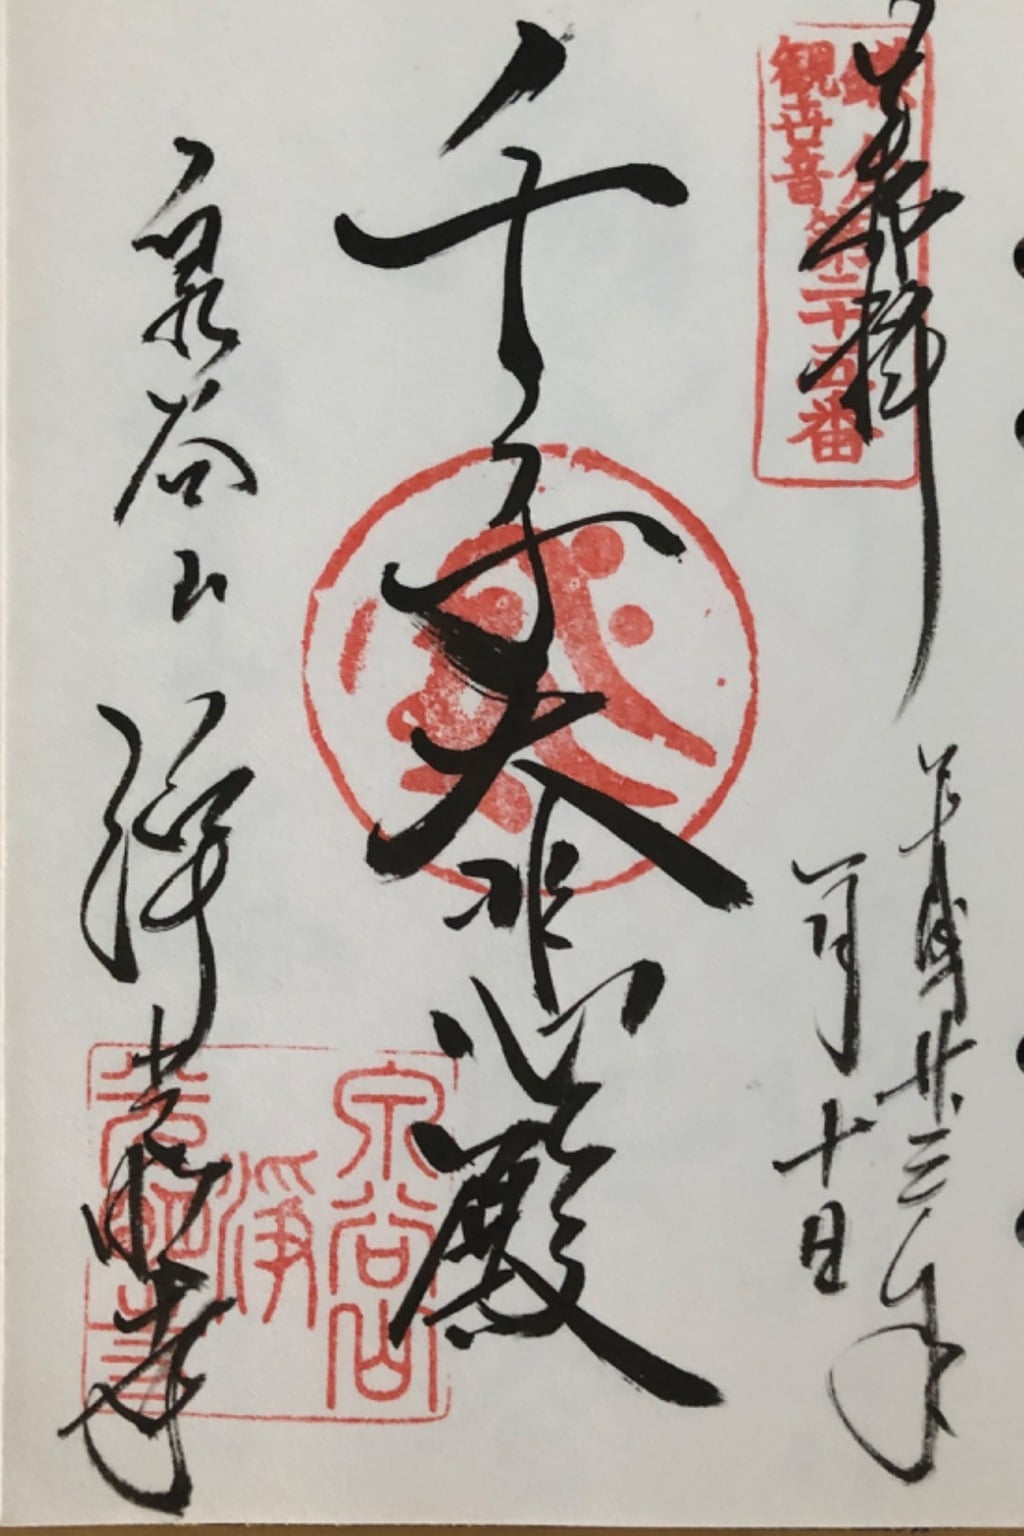 奉拝
鎌倉
観世音
第二十五番
平成廿三年
一月十日
千手大悲殿
泉谷山 浄光明寺
泉谷山
淨
光明寺